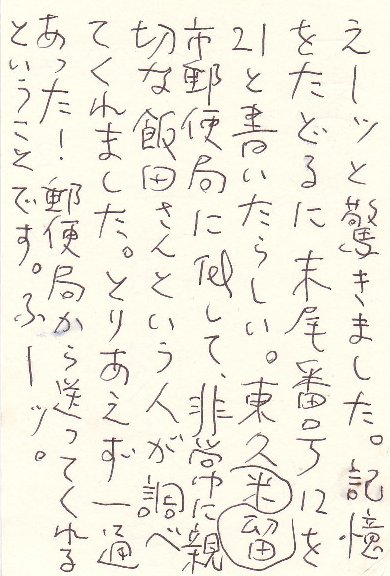 えーッと驚きました。記憶
をたどるに末尾番号12を
21と書いたらしい。東久米留
市郵便局にして、非常に親
切な飯田さんという人が調べ
てくれました。とりあえず一通
あった！郵便局から送ってくれる
ということです。ふーッ。